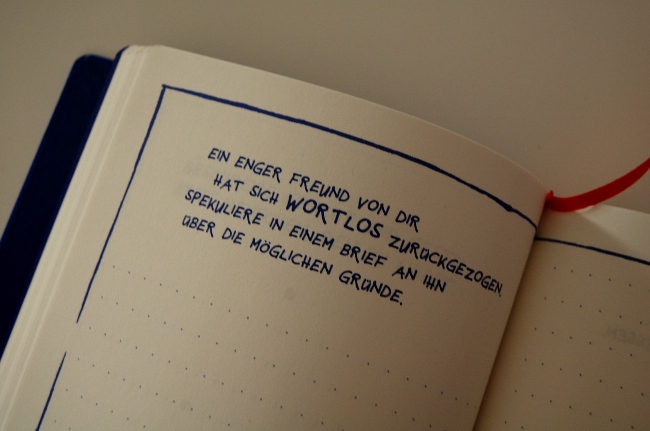 EIN ENGER FREUND VON DIR
HAT SICH WORTLOS ZURÜCKGEZOGEN.
SPEKULIERE IN EINEM BRIEF AN IHN
ÜBER DIE MÖGLICHEN GRÜNDE.